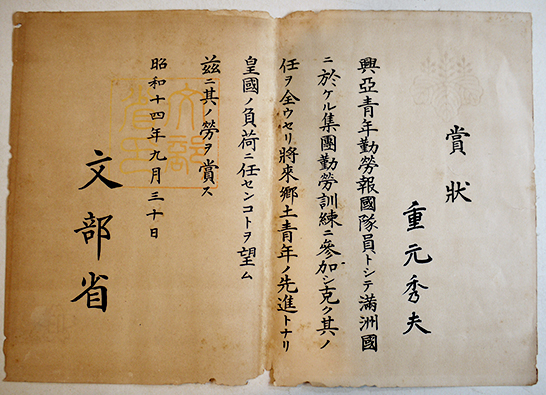 賞狀
重元秀夫
興亞青年勤勞報國隊員トシテ滿洲國
ニ於ケル集團勤勞訓練ニ參加シ克ク其ノ
任ヲ全ウセリ將來鄕土青年ノ先進トナリ
皇國ノ負荷ニ任センコトヲ望ム
茲ニ其ノ勞ヲ賞ス
昭和十四年九月三十日
文部省